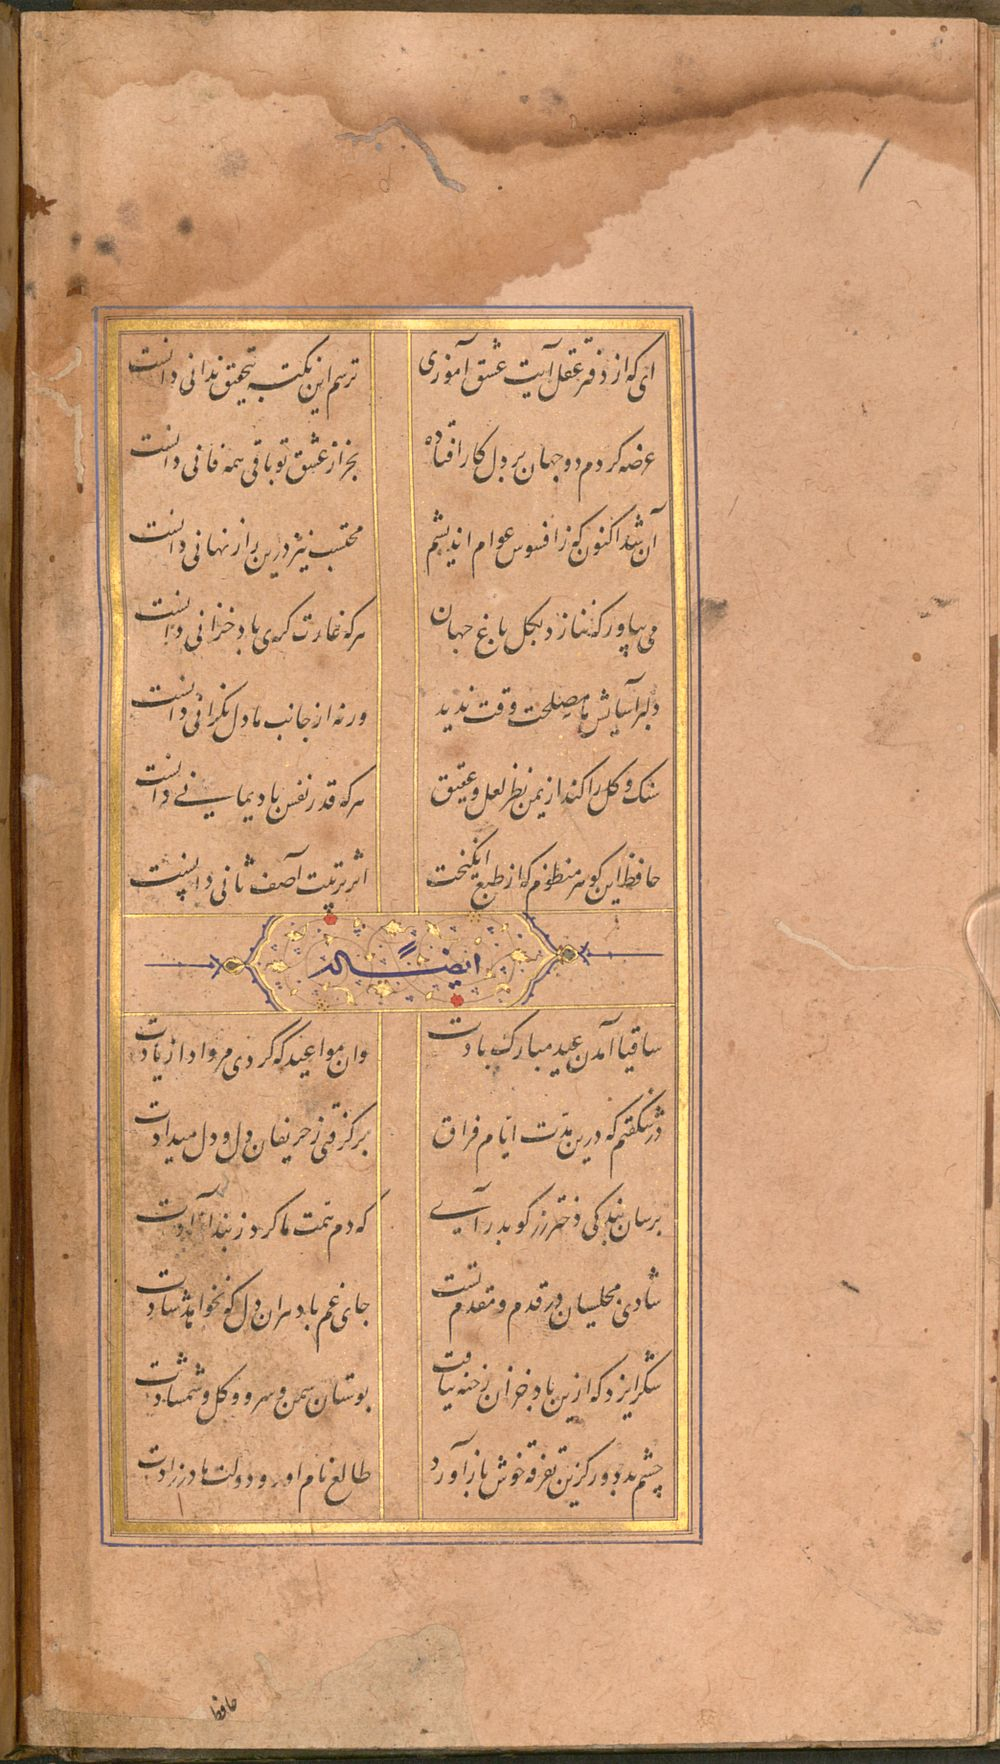 ای که از دفتر عقل آیت عشق آموزی ترسم این نکته بتحقیق ندانی دانست
عرضه کردم دو جهان بر دل کار افتاده بجز از عشق تو باقی همه فانی دانست
آن شد اکنون که ز افسوس عوام اندیشم محتسب نیز درین راز نهانی دانست
می بیاور که ننازد بکل باغ جهان هر که غارت کری باد خزانی دانست
دلبر آسایش ما مصلحت وقت ندید ورنه از جانب ما دل نکرانی دانست
سنک و کل را کند از یمن نظر لعل و عقیق هر که قدر نفس باد یمانی دانست
حافظ این کوهر منظوم که از طبع انکیخت اثر تربیت آصف ثانی دانست
ایضاً له
ساقیا آمدن عید مبارک بادت وان مواعید که کردی مرواد از یادت
در شکفتم که درین مدت ایام فراق برکرفتی ز حریفان دل و دل میدادت
برسان بندکی دختر رز کو بدر آی که دم همت ما کرد ز بند آزادت
شادی مجلسیان در قدم و مقدم تست جای غم باد مران دل که نخواهد شادت
شکر ایزد که ازین باد خزان رخنه نیافت بوستان سمن و سرو و کل و شمشادت
چشم بد دور کزین تفرقه خوش باز آورد طالع نام اور و دولت مادرزادت
حافظا